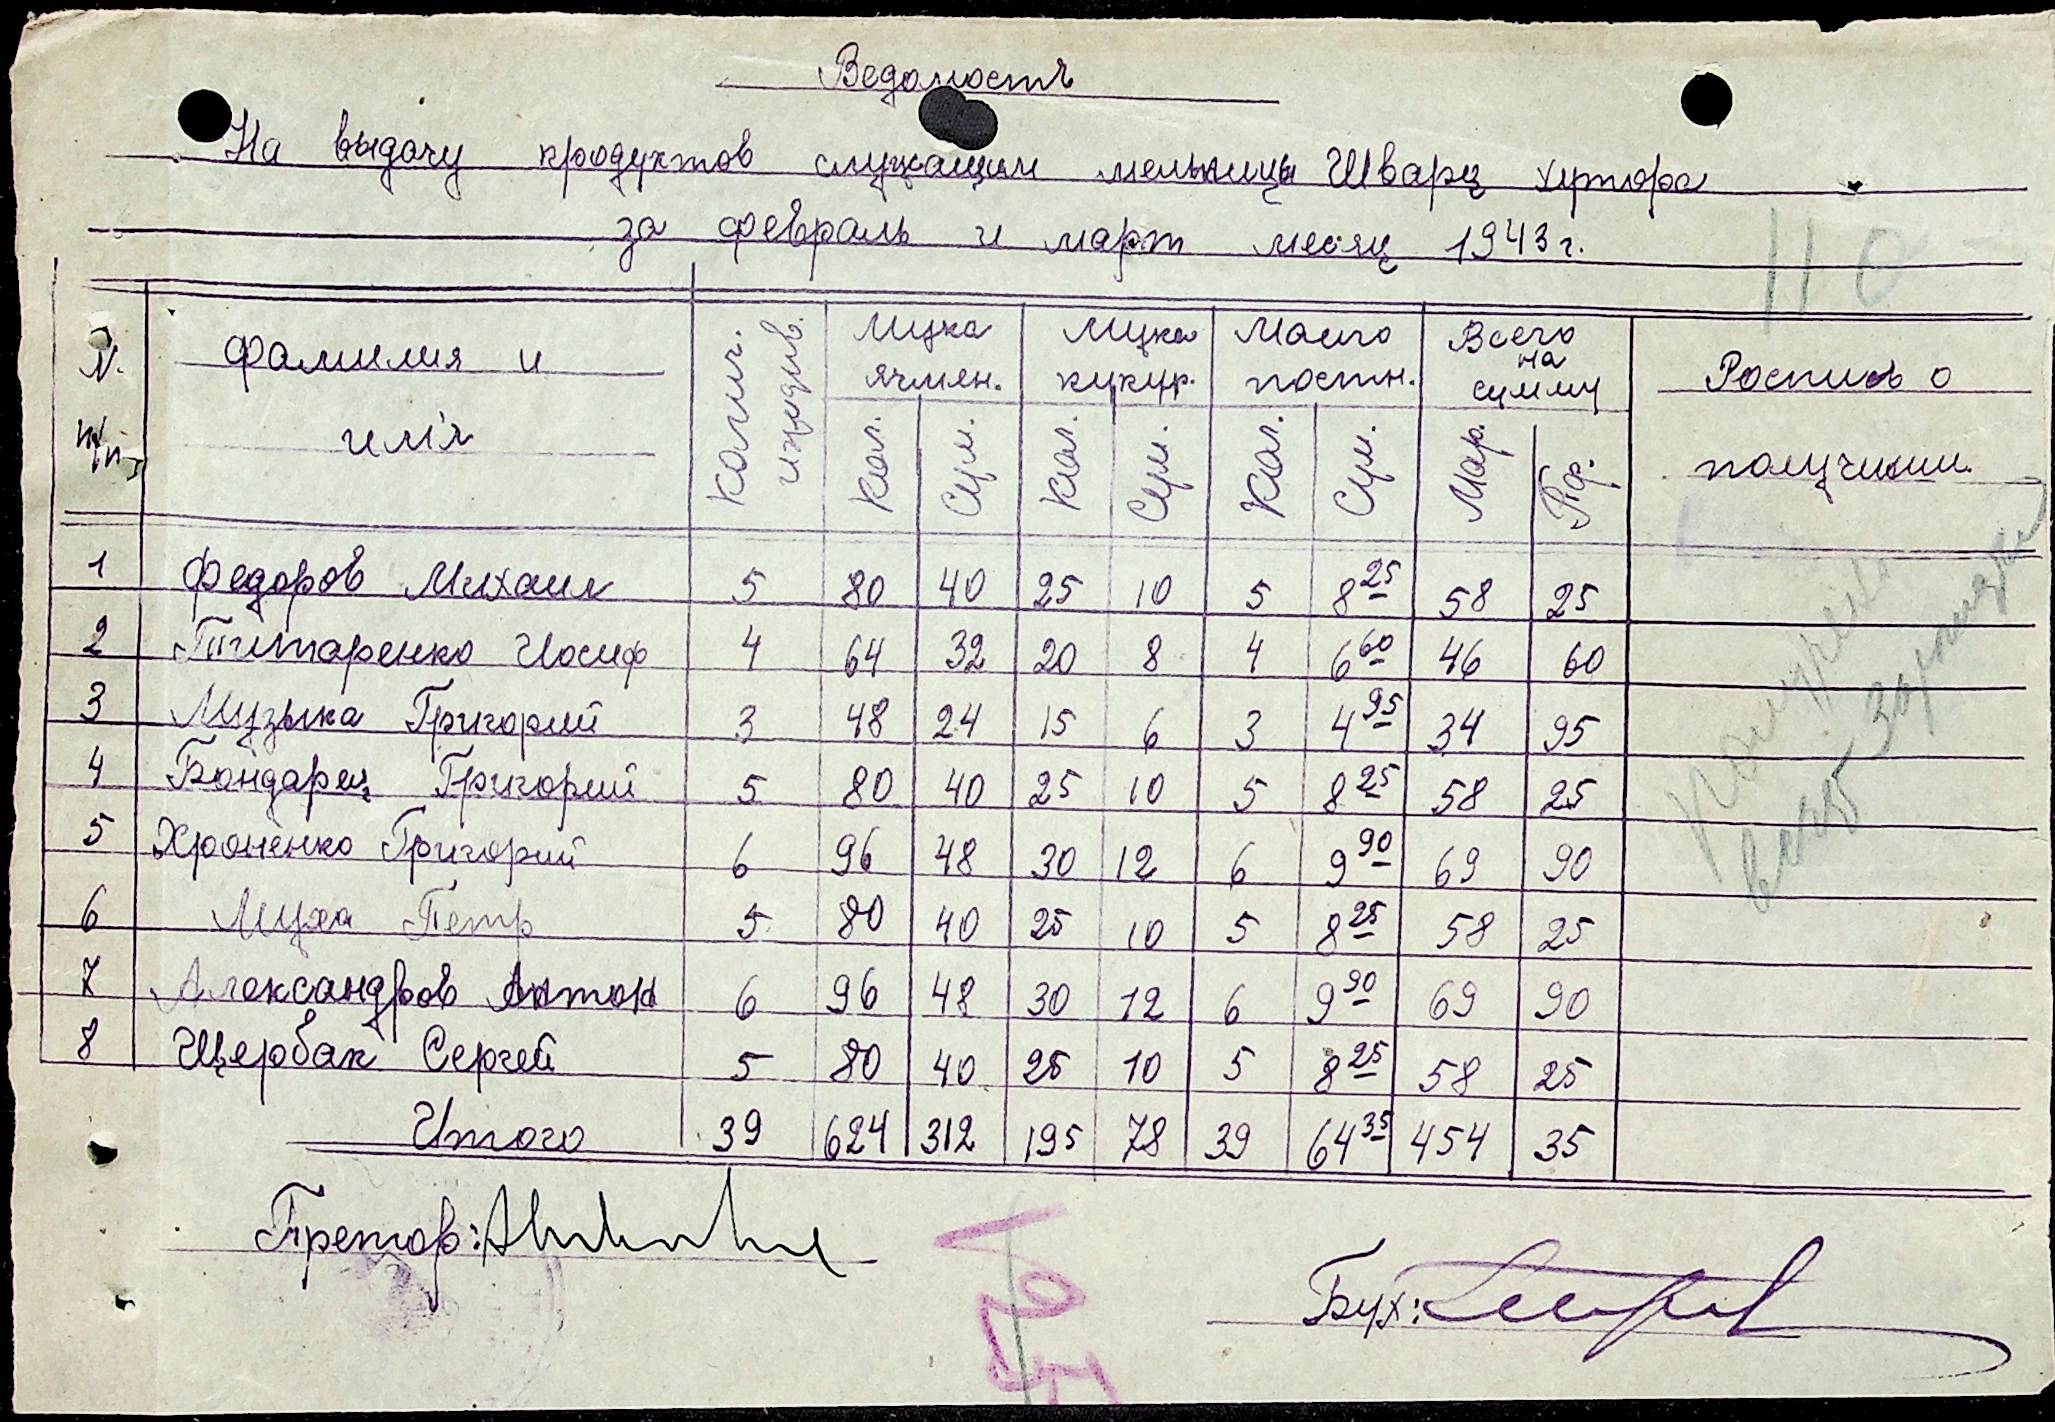 Ведомость
На выдачу продуктов служащим мельницы Шварц хутора
за февраль и март месяц 1943 г.
110
N. п/п фамилия и имя Колич. индив. Мука ячмен. Мука кукур. Масло постн. Всего на сумму Роспись о получении
Кол. Сум. Кол. Сум. Кол. Сум. Мар. Пф.
1 Федоров Михаил 5 80 40 25 10 5 8 25 58 25
2 Титаренко Иосиф 4 64 32 20 8 4 6 60 46 60
3 Музыка Григорий 3 48 24 15 6 3 4 95 34 95
4 Бондарец Григорий 5 80 40 25 10 5 8 25 58 25
5 Хроненко Григорий 6 96 48 30 12 6 9 90 69 90
6 Муха Петр 5 80 40 25 10 5 8 25 58 25
7 Александров Антон 6 96 48 30 12 6 9 90 69 90
8 Щербак Сергей 5 80 40 25 10 5 8 25 58 25
Итого 39 624 312 195 78 39 64 35 454 35
Бух: